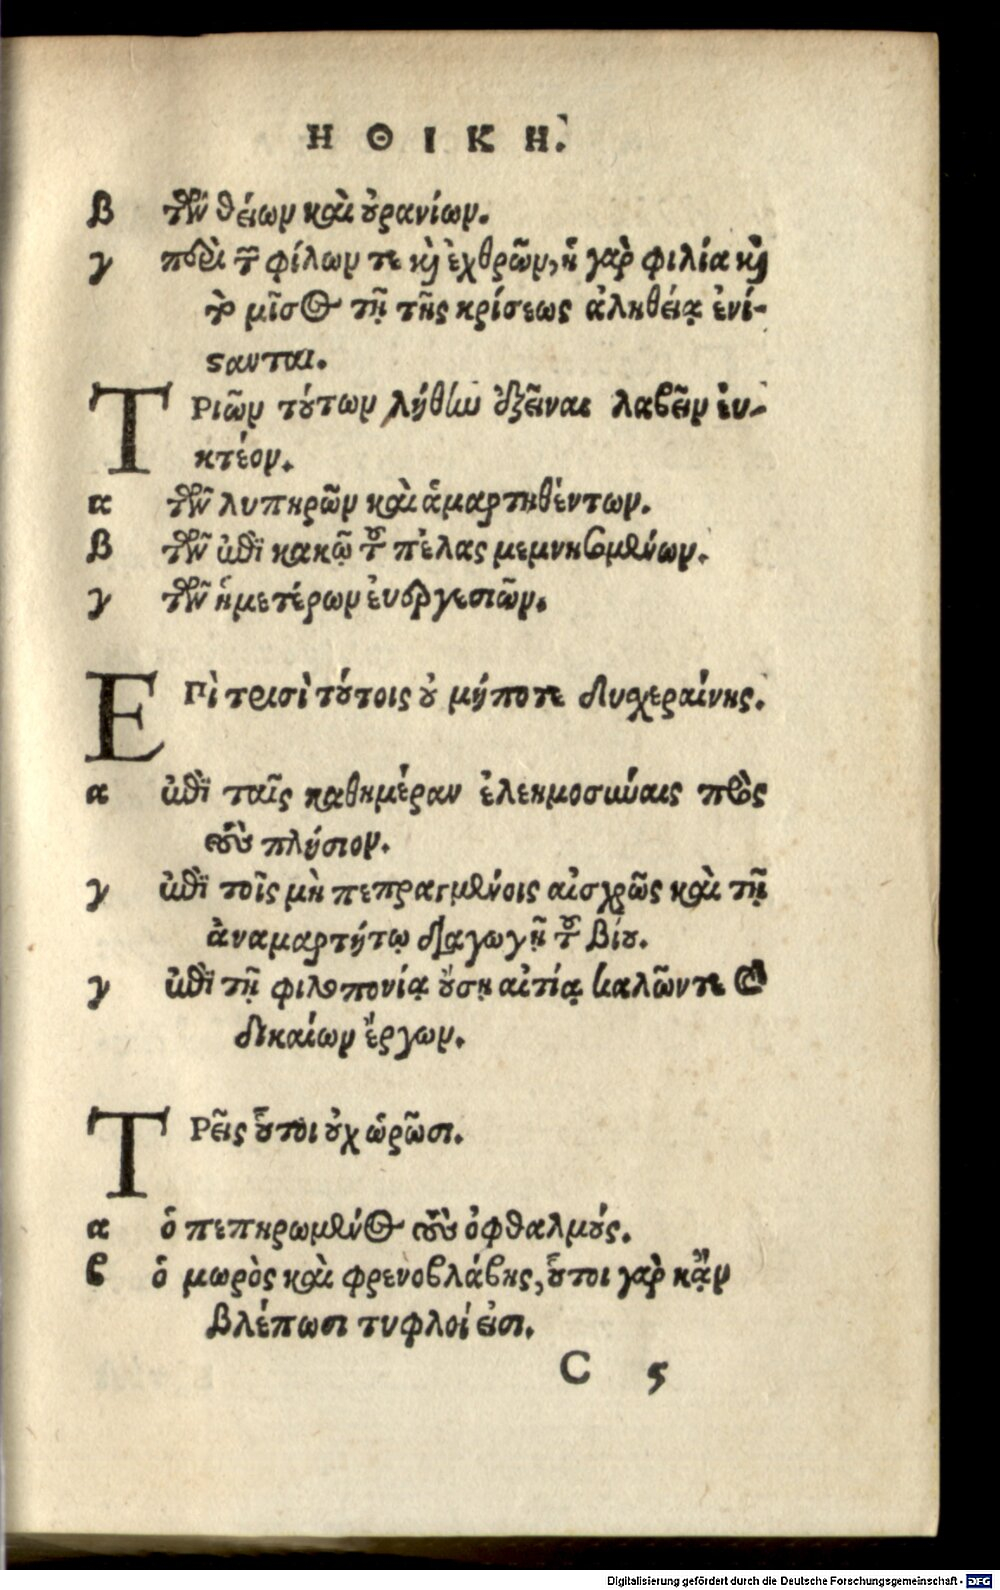 ΗΘΙΚΗ.
β τῶν θείων καὶ οὐρανίων.
γ περὶ τῶν φίλων τε καὶ ἐχθρῶν, ἡ γὰρ φιλία καὶ
τὸ μῖσος τῇ τῆς κρίσεως ἀληθείᾳ ἐνί-
ςανται.
ΤΡιῶν τούτων λήθην δεῖναι λαβεῖν εὐ-
κτέον.
α τῶν λυπηρῶν καὶ ἁμαρτηθέντων.
β τῶν ἐπὶ κακῷ τοῦ πέλας μεμνησομένων.
γ τῶν ἡμετέρων εὐεργεσιῶν.
ΕΠὶ τρισὶ τούτοις οὐ μήποτε δυσχεραίνης.
α ἐπὶ ταῖς καθημέραν ἐλεημοσύναις πρὸς
τοὺς πλήσιον.
γ ἐπὶ τοῖς μὴ πεπραγμένοις αἰσχρῶς καὶ τῇ
ἀναμαρτήτῳ διαγωγῇ τοῦ βίου.
γ ἐπὶ τῇ φιλοπονίᾳ οὔσῃ αἰτίᾳ καλῶν τε καὶ
δικαίων ἔργων.
ΤΡεῖς οὗτοι οὐχ ὡρῶσι.
α ὁ πεπηρωμένος τοὺς ὀφθαλμούς.
β ὁ μωρὸς καὶ φρενοβλάβης, οὗτοι γὰρ κἂν
βλέπωσι τυφλοί εἰσι.
C 5
Digitalisierung gefördert durch die Deutsche Forschungsgemeinschaft - DFG